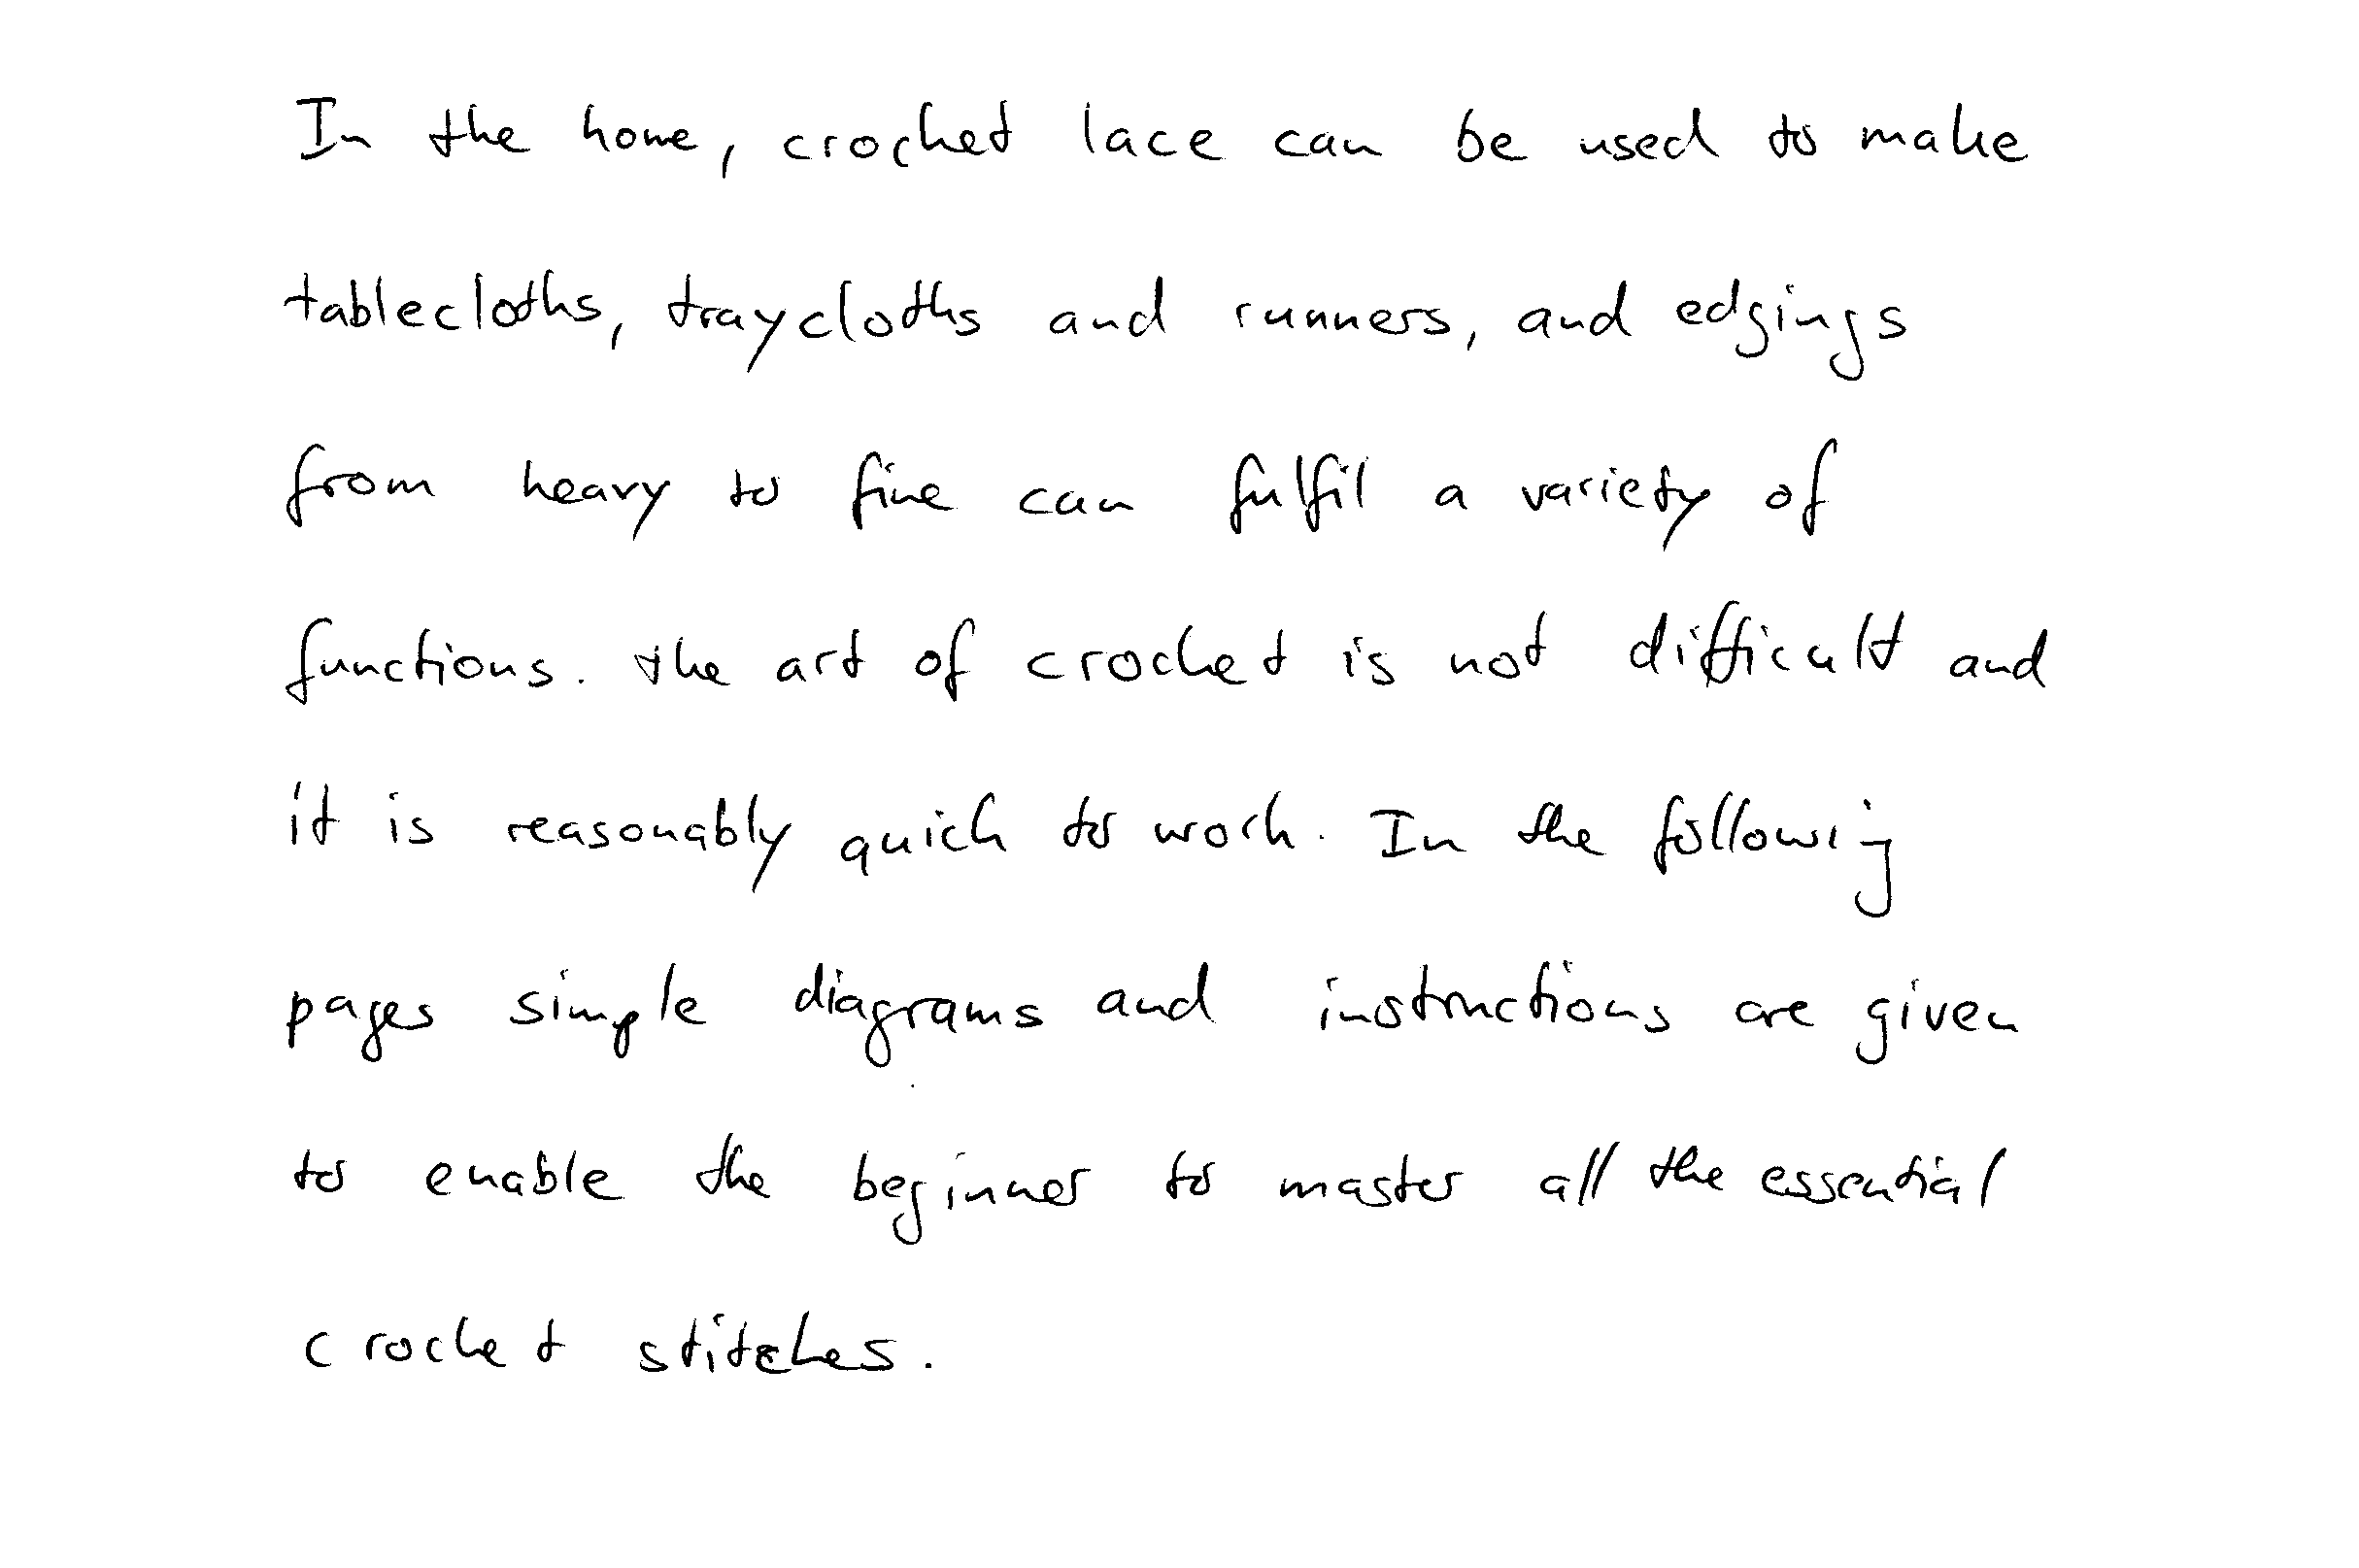 In the home, crochet lace can be used to make
tablecloths, traycloths and runners, and edgings
from heavy to fine can fulfil a variety of
functions. the art of crochet is not difficult and
it is reasonably quick to work. In the following
pages simple diagrams and instructions are given
to enable the beginner to master all the essential
crochet stitches.